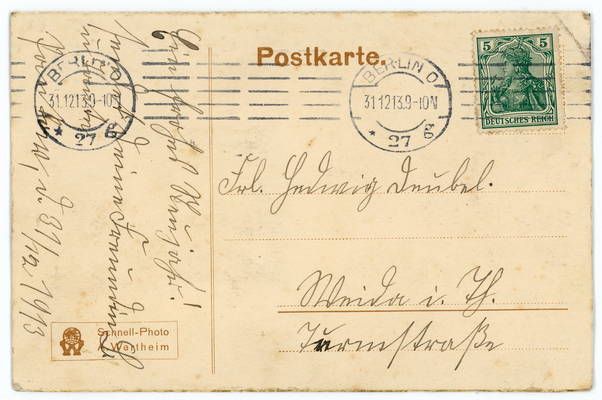 Postkarte.
5
DEUTSCHES REICH
BERLIN O
31.12.13.9-10N
* 27 g
BERLIN O
31.12.13.9-10N
* 27 g
Frl. Hedwig Deubel.
Weida i. Th.
Turmstraße
Ein frohes Neujahr!
sendet Deine Freundin
d. 31/12 1913
Schnell-Photo
Wertheim